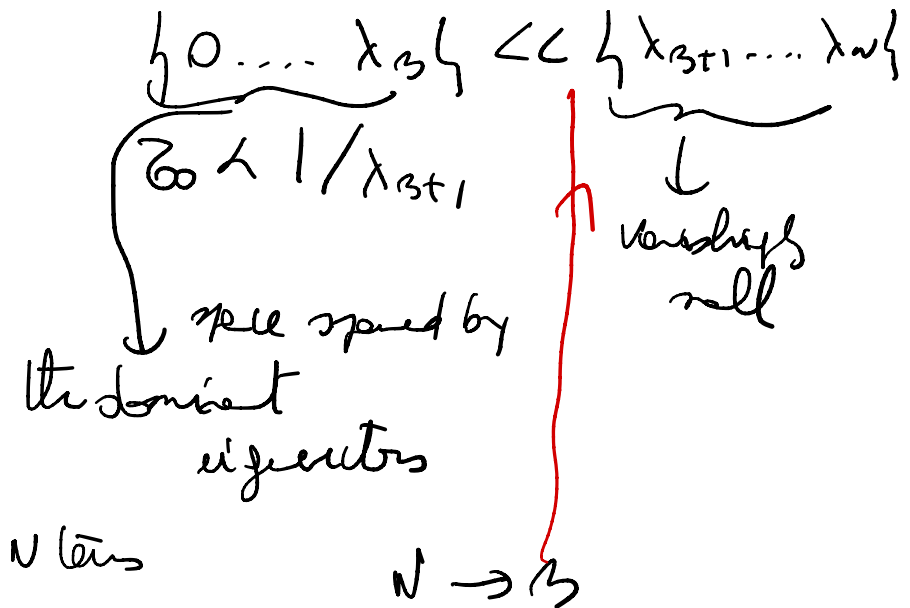 {0 .... λ_B} << {λ_B+1 .... λ_N}
τ_0 < 1/λ_B+1
vanishingly
small
space spanned by
the dominant
eigenvectors
N terms
N → B